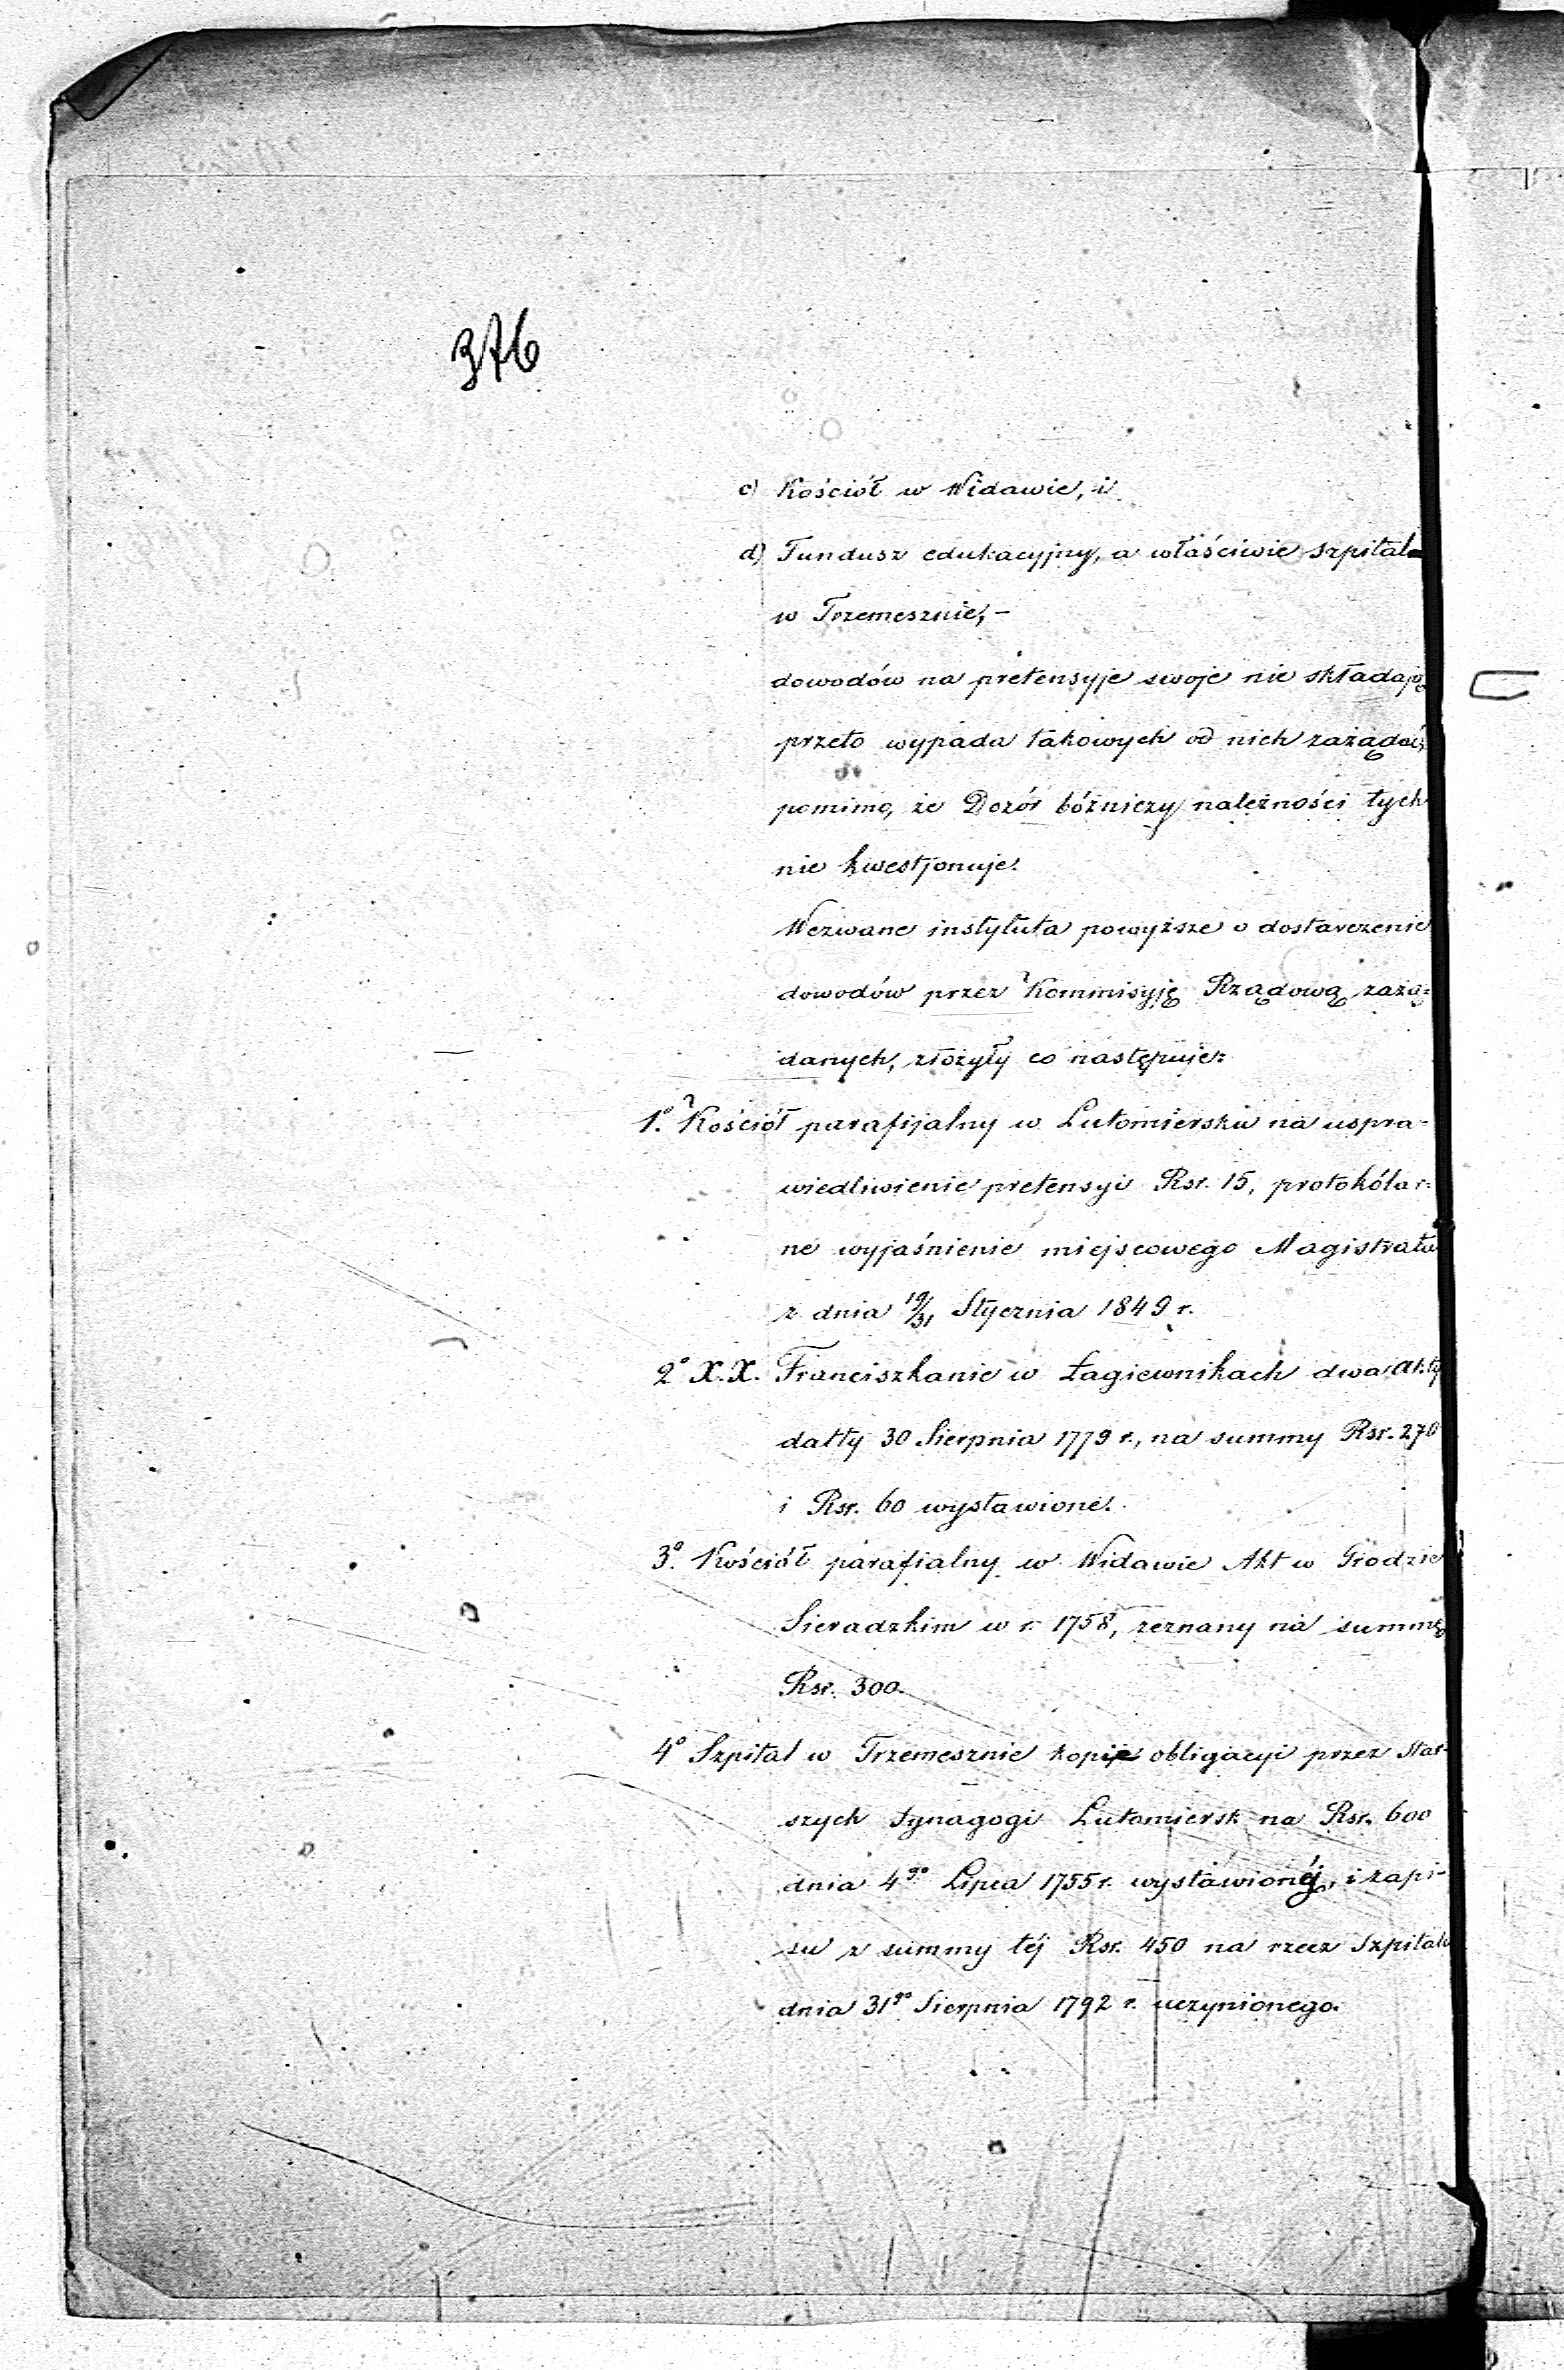 376
c) Kościół w Widawie, i
d) Fundusz edukacyjny, a właściwie szpital
w Trzemesznie,-
dowodów na pretensyje swoje nie składają
przeto wypada takowych od nich zażądać,
pomimo, że Dozór bóżniczy należności tych
nie kwestjonuje.
Wezwane instytuta powyższe o dostarczenie
dowodów przez Kommisyję Rządową zażą=
danych, złożyły co następuje:
1.° Kościół parafijalny w Lutomiersku na uspra-
wiedliwienie pretensyi Rsr. 15, protokólar-
ne wyjaśnienie miejscowego Magistratu
z dnia 19/31 Stycznia 1849 r.
2° X.X. Franciszkanie w Łagiewnikach dwa akty
datty 30 Sierpnia 1779 r., na summy Rsr. 270
i Rsr. 60 wystawione.
3.° Kościół parafialny w Widawie Akt w Grodzie
Sieradzkim w r. 1758, zeznany na summę
Rsr. 300.
4° Szpital w Trzemesznie kopije obligacyi przez star-
szych Synagogi Lutomiersk na Rsr. 600
dnia 4go Lipca 1755 r. wystawionéj, i zapi-
su z summy téj Rsr. 450 na rzecz Szpitalu
dnia 31go Sierpnia 1792 r. uczynionego.